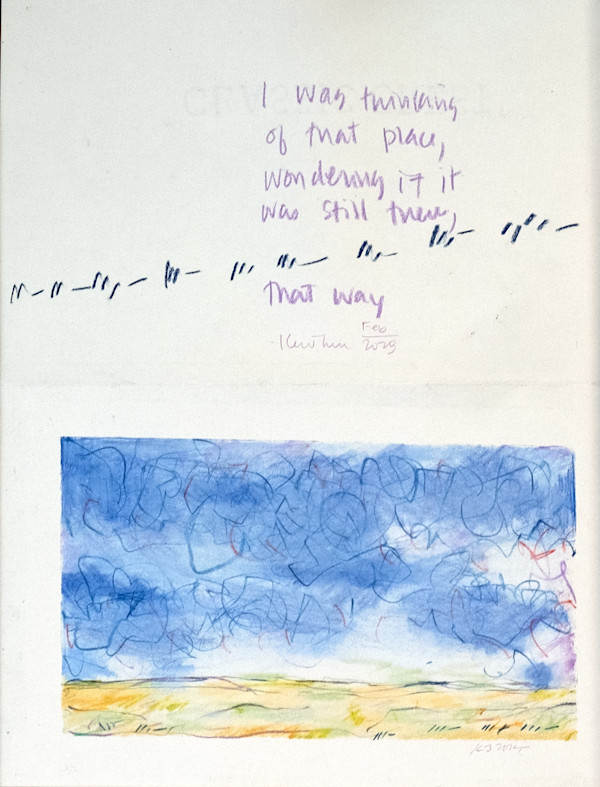 I was thinking
of that place,
wondering if it
was still there,
that way
Feb